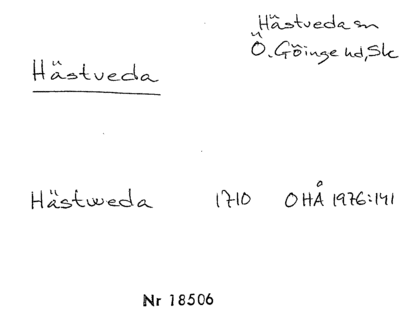 Hästveda sn
Ö. Göinge hd, Sk
Hästveda
Hästweda 1710 OHÅ 1976:141
Nr 18506